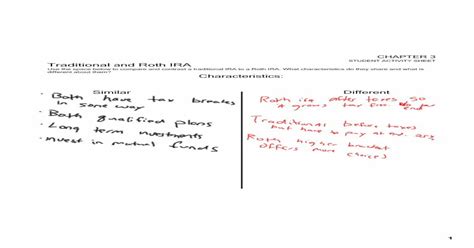 CHAPTER 3
STUDENT ACTIVITY SHEET
Traditional and Roth IRA
Use the space below to compare and contrast a traditional IRA to a Roth IRA. What characteristics do they share and what is
different about them?
Characteristics:
Similar
• Both have tax breaks
in some way
• Both qualified plans
• Long term investments
• Invest in mutual funds
Different
Roth is after taxes so
it grows tax free
end
Traditional before taxes
but have to pay at end
Roth higher bracket
offers more choices
1